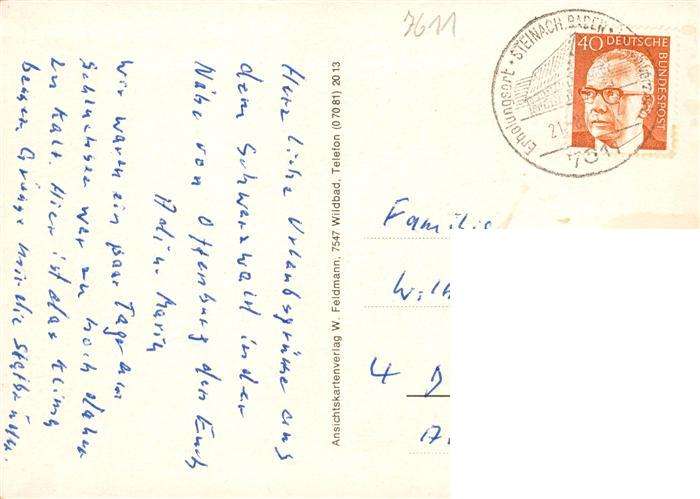 7611
Erholungsort • STEINACH, BADEN •
21
7611
40 DEUTSCHE
BUNDESPOST
Herzliche Urlaubsgrüße aus
dem Schwarzwald in der
Nähe von Offenburg den Euch
wir waren ein paar Tage am
Schluchsee war zu hoch daher
zu kalt. Hier ist das Klima
besser. Grüße mir die
Ansichtskartenverlag W. Feldmann, 7547 Wildbad, Telefon (07081) 2013
Familie
4 D